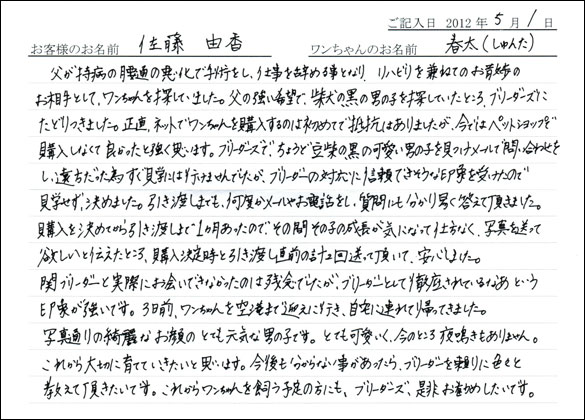 ご記入日 2012年 5月 1日
お客様のお名前 佐藤 由香 ワンちゃんのお名前 春太(しゅんた)
父が持病の腰痛の悪化で手術をし、仕事を辞める事となり、リハビリを兼ねてのお散歩の
お相手として、ワンちゃんを探していました。父の強い希望で、柴犬の黒の男の子を探していたところ、ブリーダーズに
たどりつきました。正直、ネットでワンちゃんを購入するのは初めてで抵抗はありましたが、今ではペットショップで
購入しなくて良かったと強く思います。ブリーダーズで、ちょうど豆柴の黒の可愛い男の子を見つけメールで問い合わせを
し、遠方だった為すぐ見学には行けませんでたが、ブリーダーの対応に信頼できそうな印象を受けたので
見学せず、決めました。引き渡しまでも、何度かメールやお電話をし、質問にも分かり易く答えて頂きました。
購入を決めてから引き渡しまで1か月あったのでその間その子の成長が気になって仕方なく、写真を送って
欲しいと伝えたところ、購入決定時と引き渡し直前の計2回送って頂いて、安心しました。
関ブリーダーと実際にお会いできなかったのは残念でたが、ブリーダーとして徹底されているなあという
印象が強いです。3日前、ワンちゃんを空港まで迎えに行き、自宅に連れて帰ってきました。
写真通りの綺麗なお顔のとても元気な男の子です。とても可愛いく、今のところ夜鳴きもありません。
これから大切に育てていきたいと思います。今後も分からない事があったら、ブリーダーを頼りに色々と
教えて頂きたいです。これからワンちゃんを飼う予定の方にも、ブリーダーズ、是非お勧めしたいです。